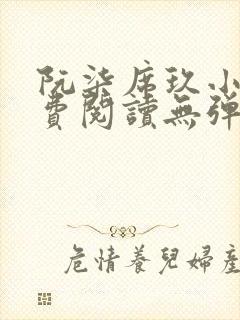 阮柒席玖小
費閱讀無彈
危情養兒婦產